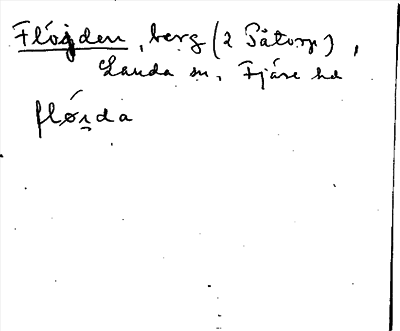 Flöjden, berg (2 Såtorp),
Landa sn, Fjäre hd
fløi̯da